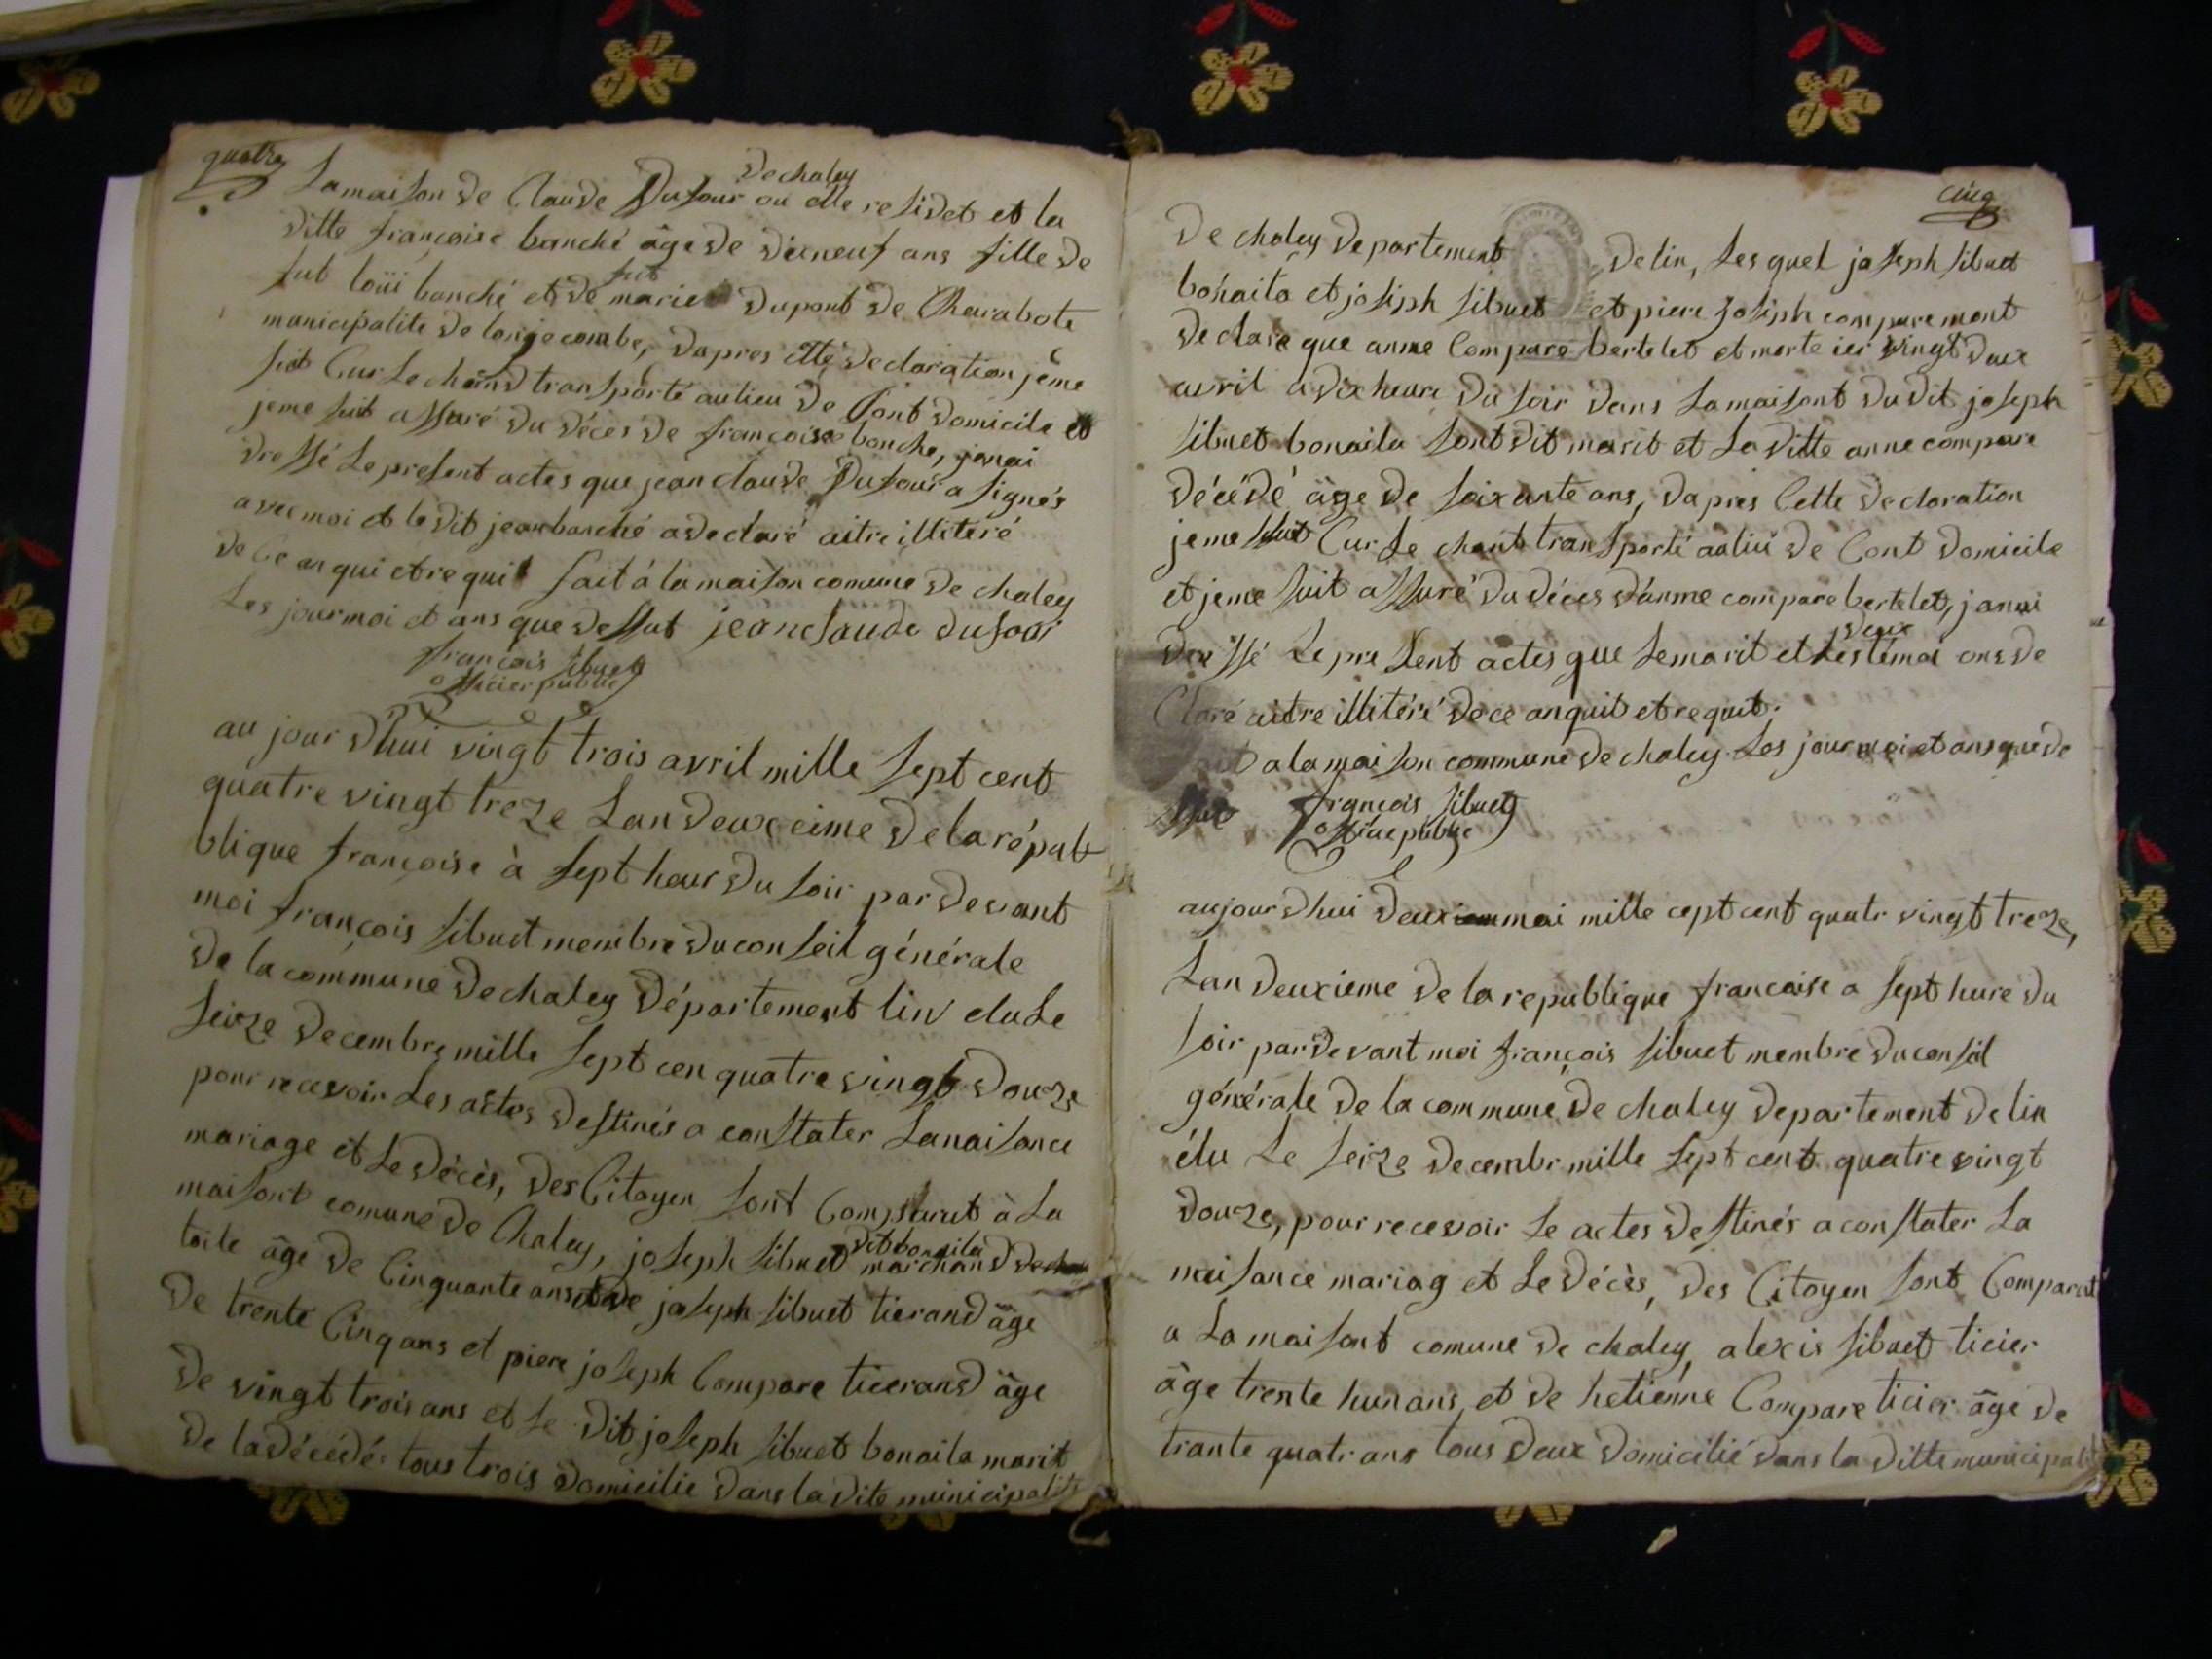 quatre
de chaley
La maison de Claude Dufour ou elle residet et la
ditte françoise banché âge de dixneuf ans fille de
fut loüi banché et de fut marie dupont de Charabote
municipalite de longecombe, dapres cette declaration jeme
suit Cur Le chand transporté au lieu de Sont domicile et
jeme suit assuré du décès de françoise banche, janai
dressé Le present actes que jean claude Dufour a signés
avec moi et le dit jean banché a declaré aitre illiteré
de Ce anqui et requit fait á la maison comune de chaley
Les jour moi et ans que dessut jéan claude dufour
françois sibuet
officier public
au jour d'hui vingt trois avril mille sept cent
quatre vingt treze Lan deuxeime de la répub
blique françoise à sept heur du soir par devant
moi françois sibuet membre du conseil générale
de la commune de chaley département lin elu Le
seize decembre mille sept cen quatre vingt douze
pour recevoir Les actes destinés a constater Lanaisance
mariage et Le décès, des Citoyen sont Comparut à La
maisont comune de Chaley, joseph sibuet dit bonaila marchand de
toile âge de Cinquante ans et de joseph sibuet tierand âge
de trente Cinq ans et piere joseph Compare ticerand âge
de vingt trois ans et Le dit joseph sibuet bonaila marit
de la décédé tous trois domicilie dans la dite municipalite
cinq
de chaley departement delin, Les quel joseph sibuet
bonaila et joseph sibuet et piere joseph compare mont
declare que anne Compare bertelet et morte ier vingt deux
avril a dix heure du soir dans La maisont du dit joseph
sibuet bonaila sont dit marit et La ditte anne compare
décédé âge de soixante ans, dapres Cette declaration
jeme suit Cur Le chant transporté au lieu de Cont domicile
et jeme suit assuré du déces d'anne compare bertelet, janai
dressé Le present actes que Le marit et Les deux témoi ons de
Claré aitre illitéré de ce anquit et requit.
fait a la maison commune de chaley Les jour moi et ans que de
ssut françois sibuet
officie public
aujourdhui deuxiem mai mille cept cent quatr vingt treze,
Lan deuxieme de la republique francaise a sept hure du
soir par devant moi françois sibuet membre du consil
générale de la commune de chaley departement de lin
élu Le seize decembr mille sept cent quatre vingt
douze, pour recevoir Le actes destinés a constater La
naisance mariag et Le décès, des Citoyen sont Comparut
a La maisont comune de chaley, alexis sibuet ticier
âge trente hun ans, et de hetienne Compare ticier âge de
trante quatr ans tous deux domicilié dans la ditte municipalit